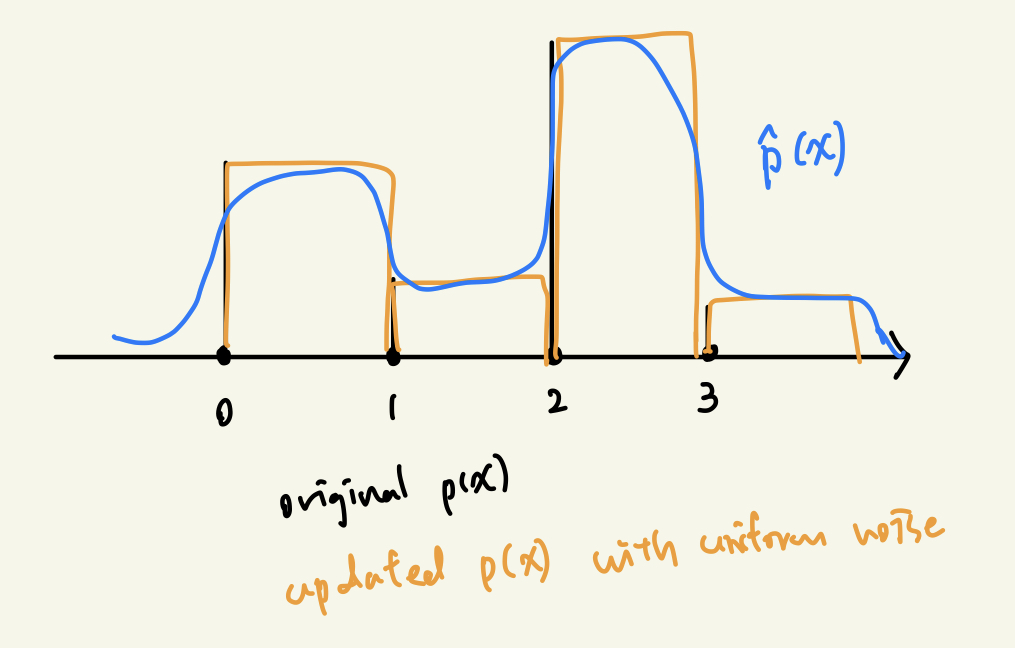 p̂(x)
0 1 2 3
original p(x)
updated p(x) with uniform noise